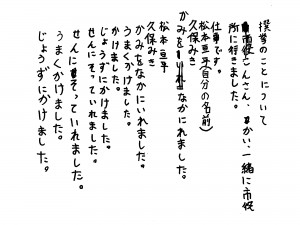 撲挙のことについて
市役さんさん、まかい、一緒に市役
所に行きました。
仕事です。
松本亘平(自分の名前)
久保みき
かみをいれなかにれました。
松本亘平
久保みき
かみをなかにいれました。
うまくかけました。
かけました。
じょうずにかけました。
せんにそっていれました。
せんにそっていれました。
うまくかけました。
じょうずにかけました。